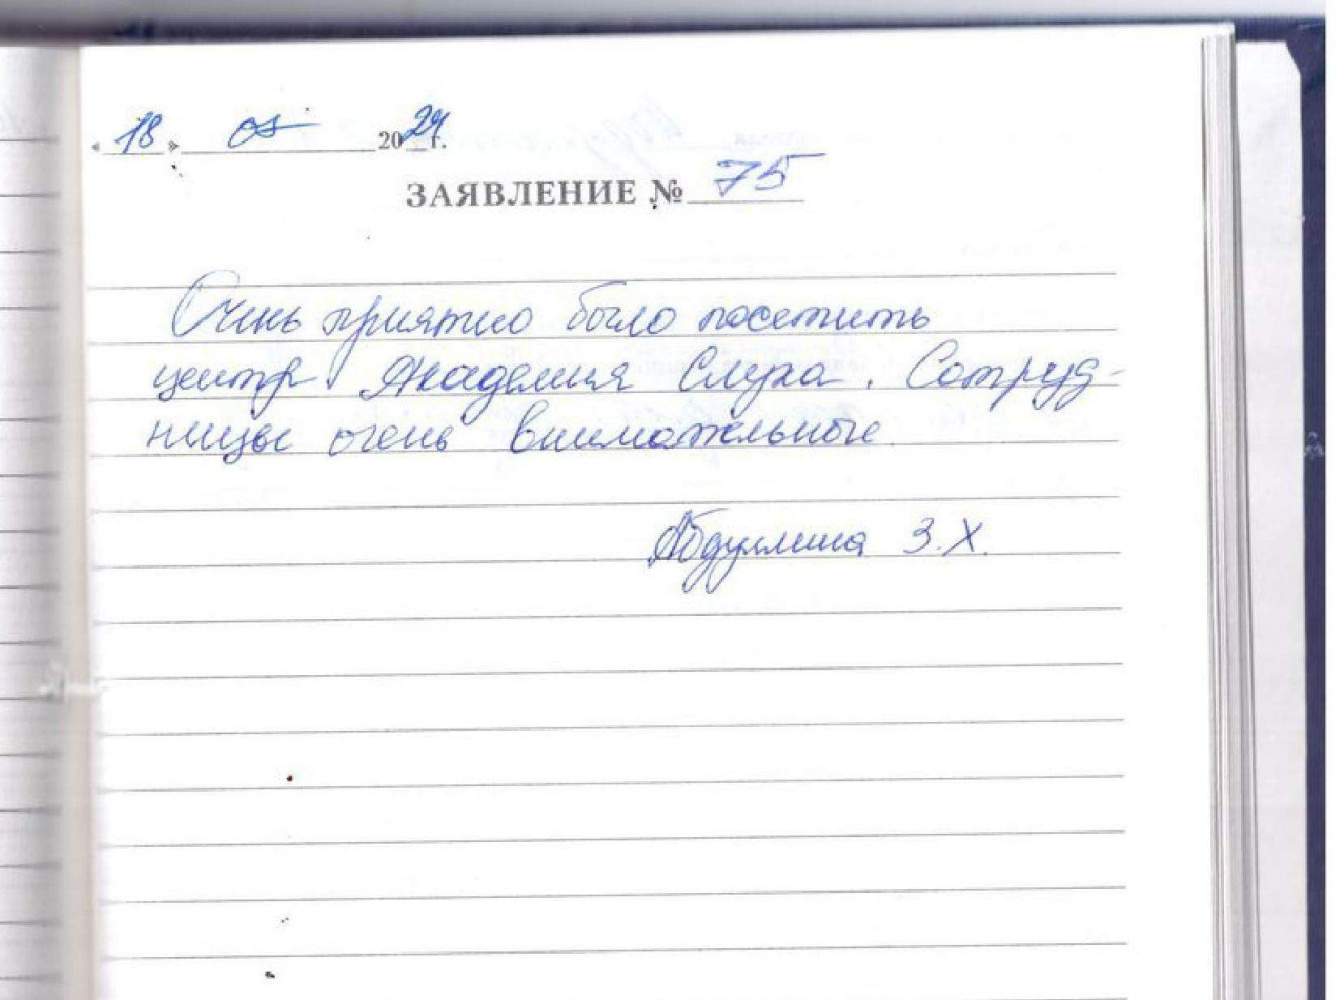 «18» 03 2024 г.
ЗАЯВЛЕНИЕ № 75
Очень приятно было посетить
центр Академия Слуха. Сотруд-
ницы очень внимательные.
Абдуллина З.Х.